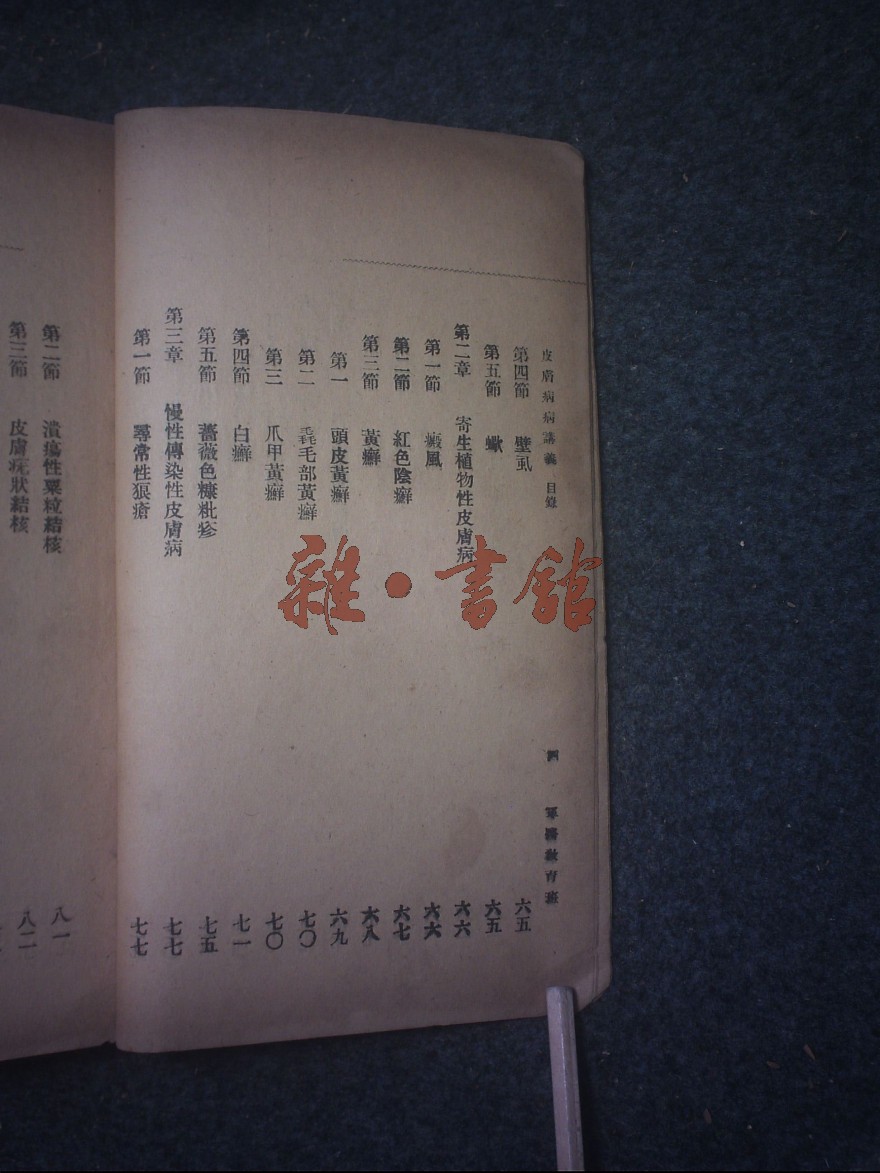 皮膚病病講義 目錄 四 軍醫教育班
第四節 壁虱 六五
第五節 蠍 六五
第二章 寄生植物性皮膚病 六六
第一節 癜風 六六
第二節 紅色陰癬 六七
第三節 黃癬 六八
第一 頭皮黃癬 六九
第二 毳毛部黃癬 七〇
第三 爪甲黃癬 七〇
第四節 白癬 七一
第五節 薔薇色糠粃疹 七五
第三章 慢性傳染性皮膚病 七七
第一節 尋常性狼瘡 七七
第二節 潰瘍性粟粒結核 八一
第三節 皮膚疣狀結核 八二
雜·書館